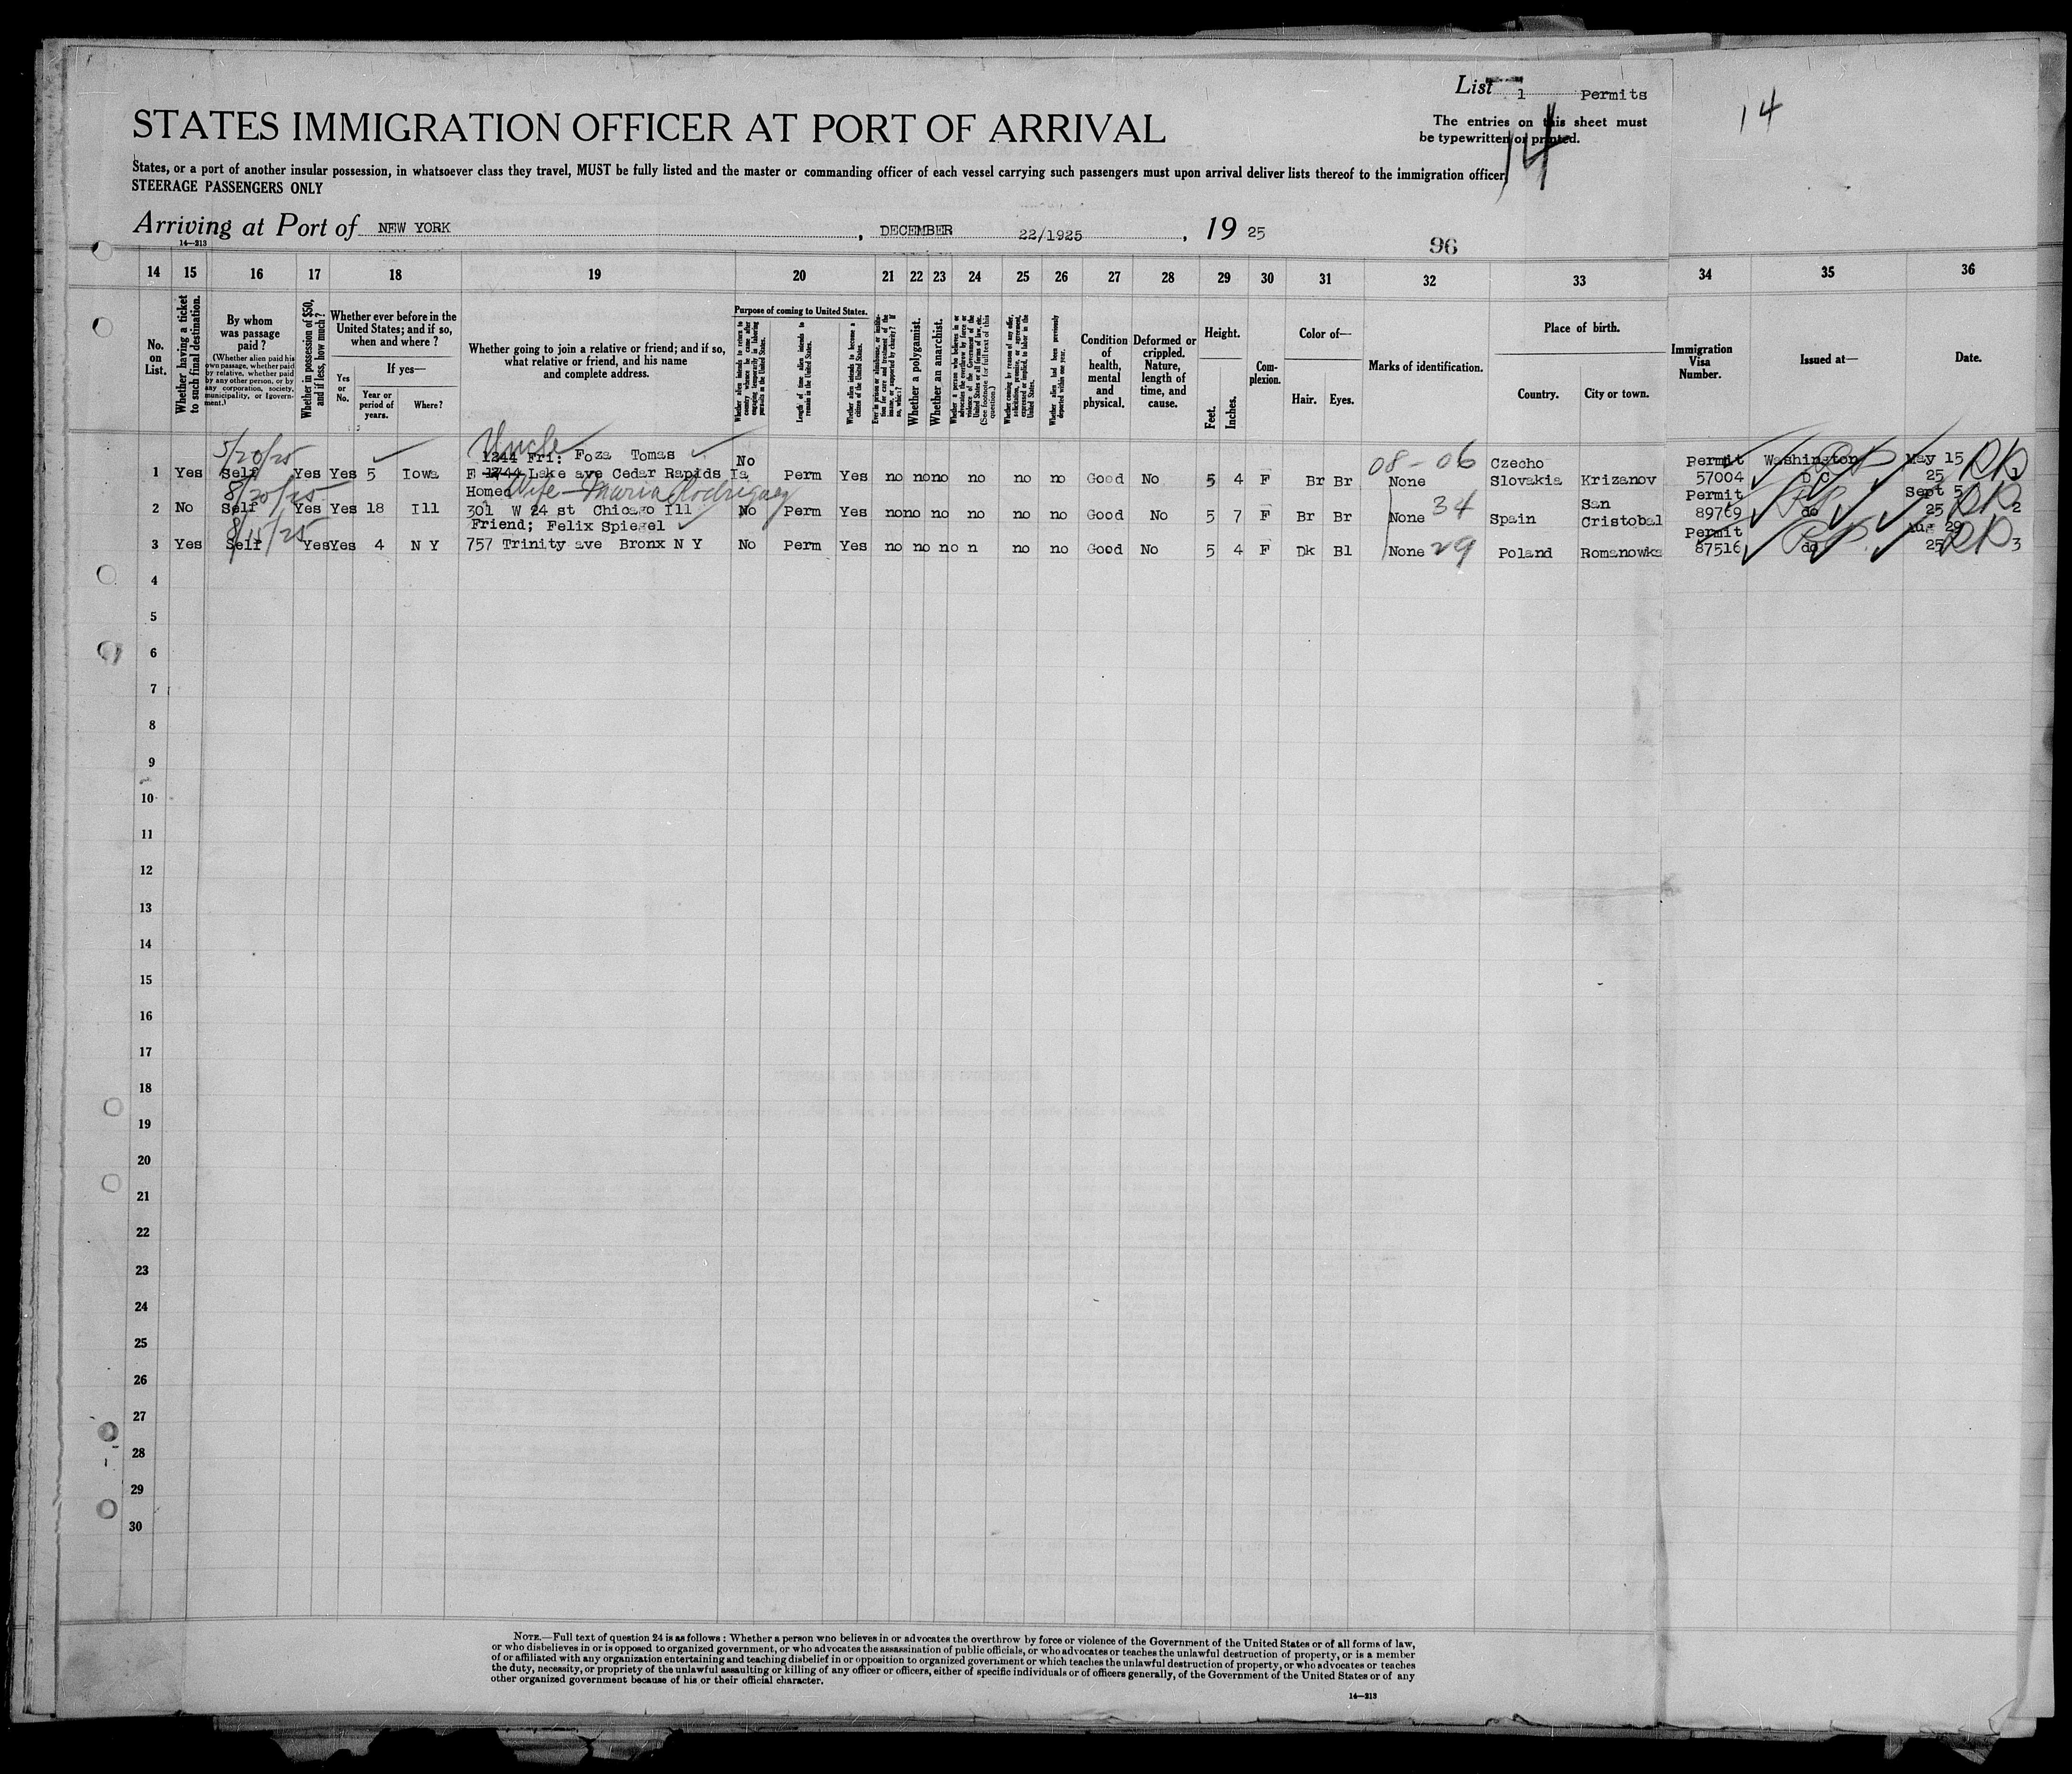 List 1 Permits
14
STATES IMMIGRATION OFFICER AT PORT OF ARRIVAL
The entries on this sheet must
be typewritten or printed.
14
States, or a port of another insular possession, in whatsoever class they travel, MUST be fully listed and the master or commanding officer of each vessel carrying such passengers must upon arrival deliver lists thereof to the immigration officer
STEERAGE PASSENGERS ONLY
Arriving at Port of NEW YORK, DECEMBER 22/1925, 19 25
14—213
96
14 15 16 17 18 19 20 21 22 23 24 25 26 27 28 29 30 31 32 33 34 35 36
No. on List.
Whether having a ticket to such final destination.
By whom was passage paid?
(Whether alien paid his own passage, whether paid by relative, whether paid by any other person, or by any corporation, society, municipality, or government.)
Whether in possession of $50, and if less, how much?
Whether ever before in the United States; and if so, when and where?
Yes or No.
If yes—
Year or period of years.
Where?
Whether going to join a relative or friend; and if so, what relative or friend, and his name and complete address.
Purpose of coming to United States.
Whether alien intends to return to country whence he came after engaging temporarily in laboring pursuits in the United States.
Length of time alien intends to remain in the United States.
Whether alien intends to become a citizen of the United States.
Ever in prison or almshouse, or institution for care and treatment of the insane, or supported by charity? If so, which?
Whether a polygamist.
Whether an anarchist.
Whether a person who believes in or advocates the overthrow by force or violence of the Government of the United States or all forms of law, etc. (See footnote for full text of this question.)
Whether coming by reason of any offer, solicitation, promise, or agreement, expressed or implied, to labor in the United States.
Whether alien had been previously deported within one year.
Condition of health, mental and physical.
Deformed or crippled. Nature, length of time, and cause.
Height.
Feet. Inches.
Complexion.
Color of—
Hair. Eyes.
Marks of identification.
Place of birth.
Country. City or town.
Immigration Visa Number.
Issued at—
Date.
5/20/25 Uncle
1244 Fri: Foza Tomas No 08-06 Czecho Permit Washington May 15
1 Yes Self Yes Yes 5 Iowa E 1744 Lake ave Cedar Rapids Ia Perm Yes no no no no no no Good No 5 4 F Br Br None Slovakia Krizanov 57004 D C 25 1
8/20/25 Homed Wife - Maria Rodriguez San Permit Sept 5
2 No Self Yes Yes 18 Ill 301 W 24 st Chicago Ill No Perm Yes no no no no no no Good No 5 7 F Br Br None 34 Spain Cristobal 89769 do 25 2
8/11/25 Friend; Felix Spiegel Permit Aug 29
3 Yes Self Yes Yes 4 N Y 757 Trinity ave Bronx N Y No Perm Yes no no no n no no Good No 5 4 F Dk Bl None 29 Poland Romanowka 87516 do 25 3
4
5
6
7
8
9
10
11
12
13
14
15
16
17
18
19
20
21
22
23
24
25
26
27
28
29
30
NOTE.—Full text of question 24 is as follows: Whether a person who believes in or advocates the overthrow by force or violence of the Government of the United States or of all forms of law,
or who disbelieves in or is opposed to organized government, or who advocates the assassination of public officials, or who advocates or teaches the unlawful destruction of property, or is a member
of or affiliated with any organization entertaining and teaching disbelief in or opposition to organized government or which teaches the unlawful destruction of property, or who advocates or teaches
the duty, necessity, or propriety of the unlawful assaulting or killing of any officer or officers, either of specific individuals or of officers generally, of the Government of the United States or of any
other organized government because of his or their official character.
14—213